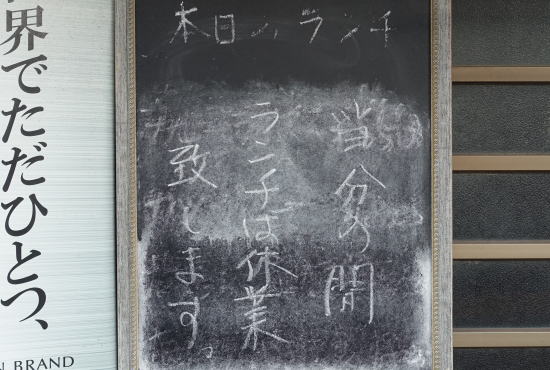 本日のランチ
当分の間
ランチは休業
致します。
界でただひとつ、
N BRAND